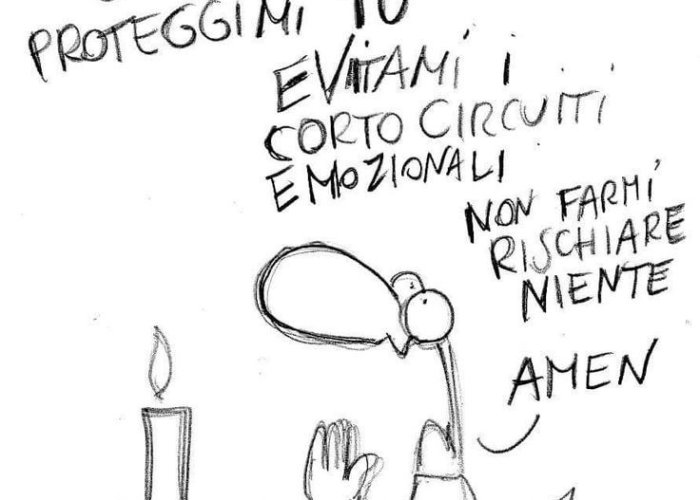 PROTEGGIMI TU
EVITAMI I
CORTO CIRCUITI
EMOZIONALI
NON FARMI
RISCHIARE
NIENTE
AMEN